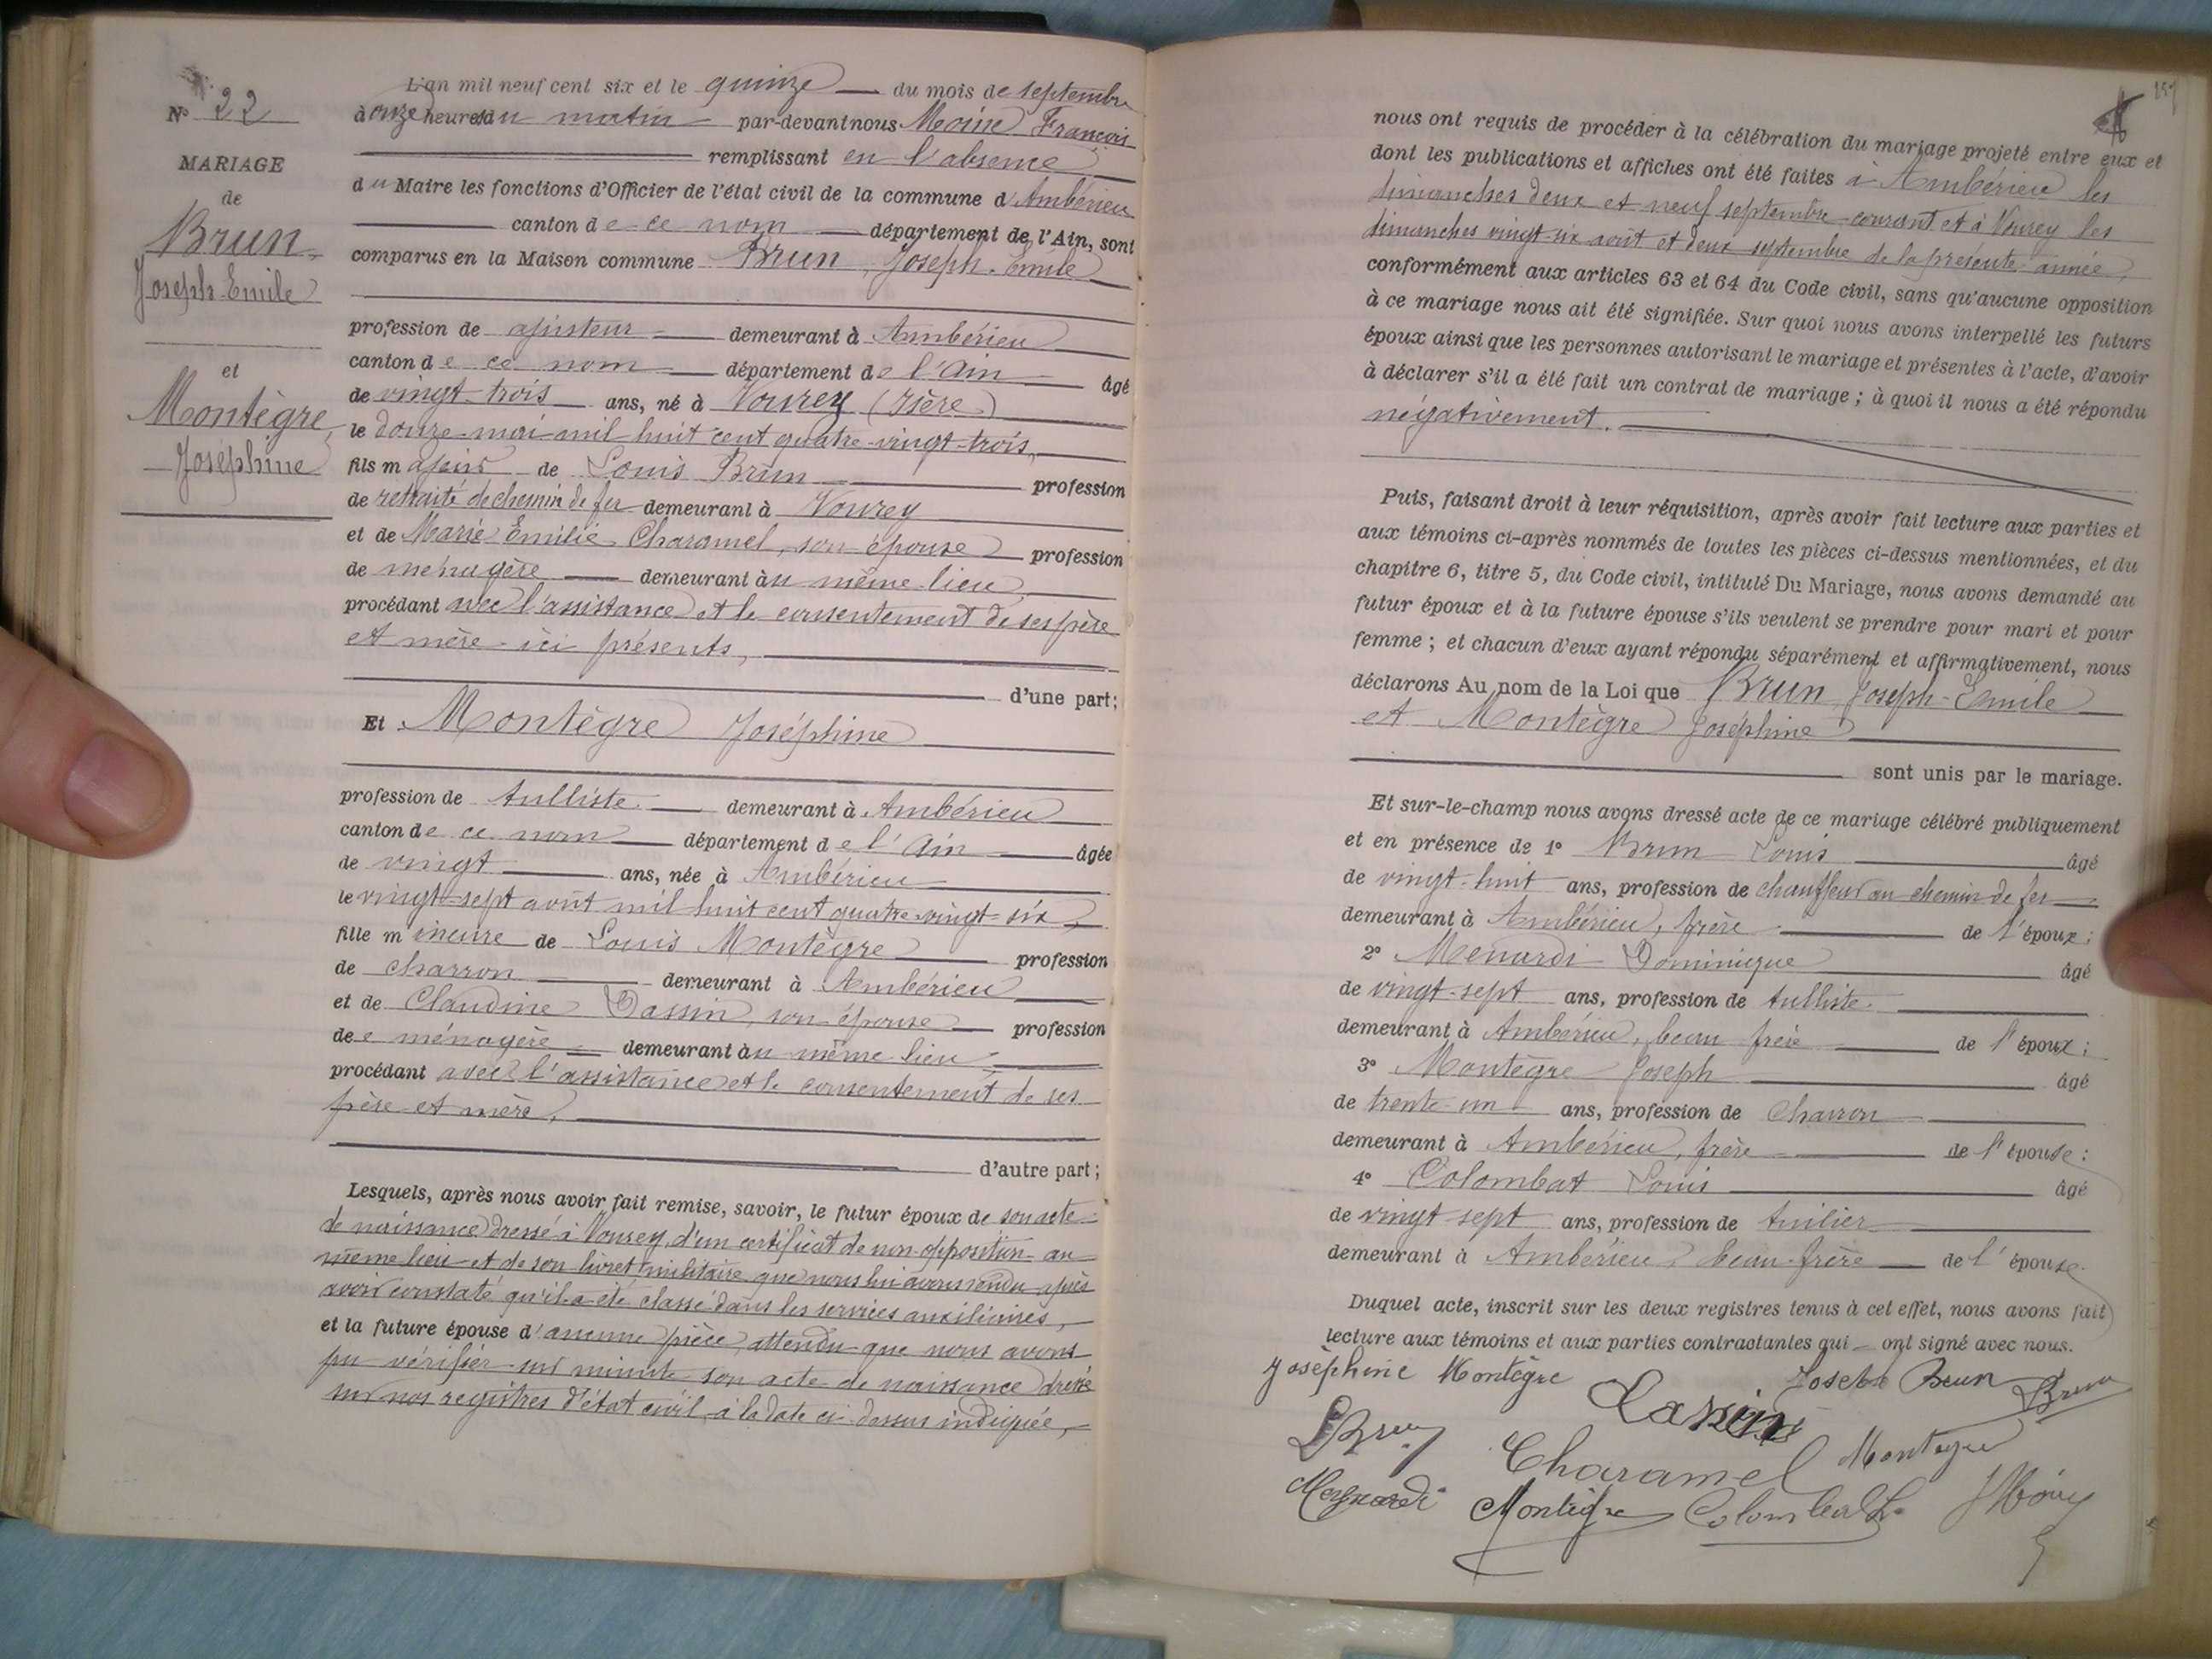 N° 22
MARIAGE
de
Brun
Joseph-Emile
et
Montègre
Joséphine
L'an mil neuf cent six et le quinze du mois de septembre
à onze heures du matin par-devant nous Moine François
remplissant en l'absence
du Maire les fonctions d'Officier de l'état civil de la commune d'Ambérieu
canton de ce nom département de l'Ain, sont
comparus en la Maison commune Brun Joseph-Emile
profession de ajusteur demeurant à Ambérieu
canton de ce nom département de l'Ain âgé
de vingt-trois ans, né à Vourey (Isère)
le douze mai mil huit cent quatre-vingt-trois,
fils majeur de Louis Brun profession
de retraité de chemin de fer demeurant à Vourey
et de Marie Emilie Charamel, son épouse profession
de ménagère demeurant au même lieu,
procédant avec l'assistance et le consentement de ses père
et mère ici présents,
d'une part;
Et Montègre Joséphine
profession de tulliste demeurant à Ambérieu
canton de ce nom département de l'Ain âgée
de vingt ans, née à Ambérieu
le vingt-sept août mil huit cent quatre-vingt-six,
fille mineure de Louis Montègre profession
de charron demeurant à Ambérieu
et de Claudine Dassin, son épouse profession
de ménagère demeurant au même lieu
procédant avec l'assistance et le consentement de ses
père et mère,
d'autre part;
Lesquels, après nous avoir fait remise, savoir, le futur époux de son acte
de naissance dressé à Vourey, d'un certificat de non-opposition au
même lieu et de son livret militaire que nous lui avons rendu après
avoir constaté qu'il a été classé dans les services auxiliaires,
et la future épouse d'aucune pièce, attendu que nous avons
pu vérifier sur minute son acte de naissance dressé
sur nos registres d'état civil à la date ci-dessus indiquée,
157
nous ont requis de procéder à la célébration du mariage projeté entre eux et
dont les publications et affiches ont été faites à Ambérieu les
dimanches deux et neuf septembre courant et à Vourey les
dimanches vingt-six août et deux septembre de la présente année,
conformément aux articles 63 et 64 du Code civil, sans qu'aucune opposition
à ce mariage nous ait été signifiée. Sur quoi nous avons interpellé les futurs
époux ainsi que les personnes autorisant le mariage et présentes à l'acte, d'avoir
à déclarer s'il a été fait un contrat de mariage ; à quoi il nous a été répondu
négativement.
Puis, faisant droit à leur réquisition, après avoir fait lecture aux parties et
aux témoins ci-après nommés de toutes les pièces ci-dessus mentionnées, et du
chapitre 6, titre 5, du Code civil, intitulé Du Mariage, nous avons demandé au
futur époux et à la future épouse s'ils veulent se prendre pour mari et pour
femme ; et chacun d'eux ayant répondu séparément et affirmativement, nous
déclarons Au nom de la Loi que Brun Joseph-Emile
et Montègre Joséphine
sont unis par le mariage.
Et sur-le-champ nous avons dressé acte de ce mariage célébré publiquement
et en présence de 1° Brun Louis âgé
de vingt-huit ans, profession de chauffeur au chemin de fer
demeurant à Ambérieu, frère de l'époux;
2° Menardi Dominique âgé
de vingt-sept ans, profession de tulliste
demeurant à Ambérieu, beau-frère de l'époux;
3° Montègre Joseph âgé
de trente-un ans, profession de charron
demeurant à Ambérieu, frère de l'épouse;
4° Colombat Louis âgé
de vingt-sept ans, profession de
demeurant à Ambérieu, beau-frère de l'épouse.
Duquel acte, inscrit sur les deux registres tenus à cet effet, nous avons fait
lecture aux témoins et aux parties contractantes qui ont signé avec nous.
Joséphine Montègre Joseph Brun Brun
LBrun
Charamel Montegre
Montègre Colombat L.